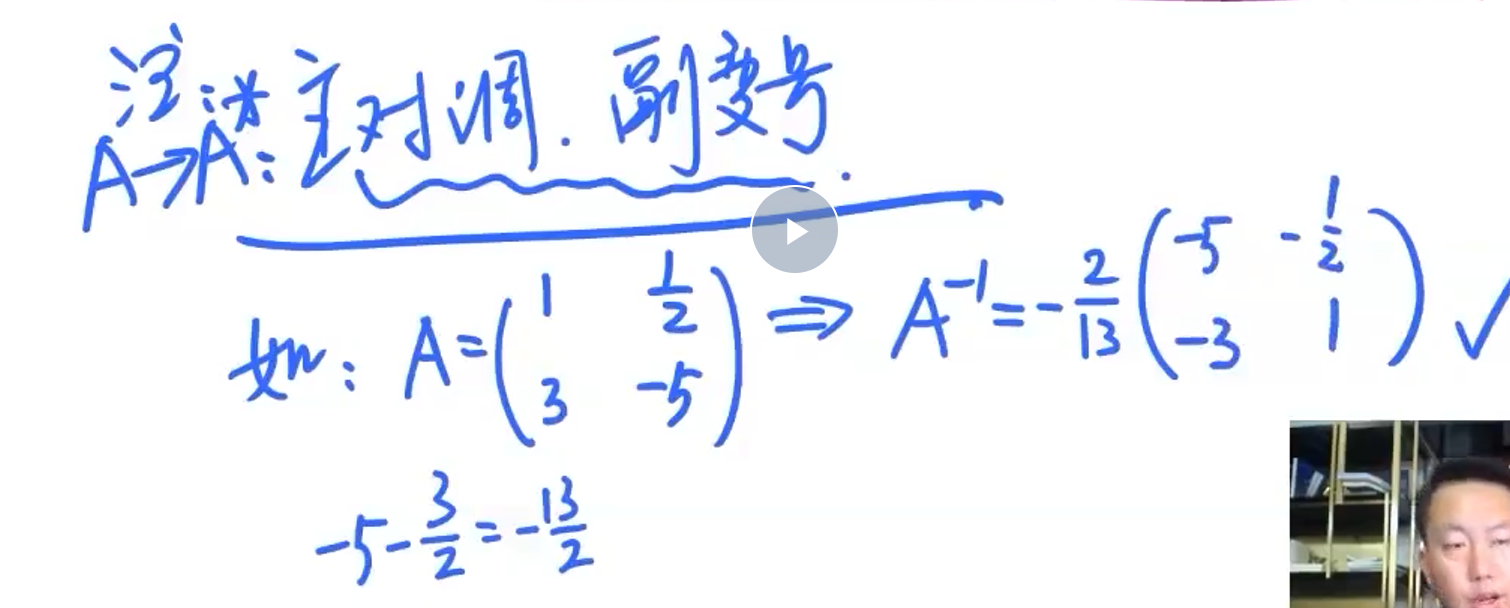 注:
A→A*: 主对调. 副变号.
如: A=(1 1/2; 3 -5) ⇒ A⁻¹=-2/13(-5 -1/2; -3 1) ✓
-5-3/2=-13/2